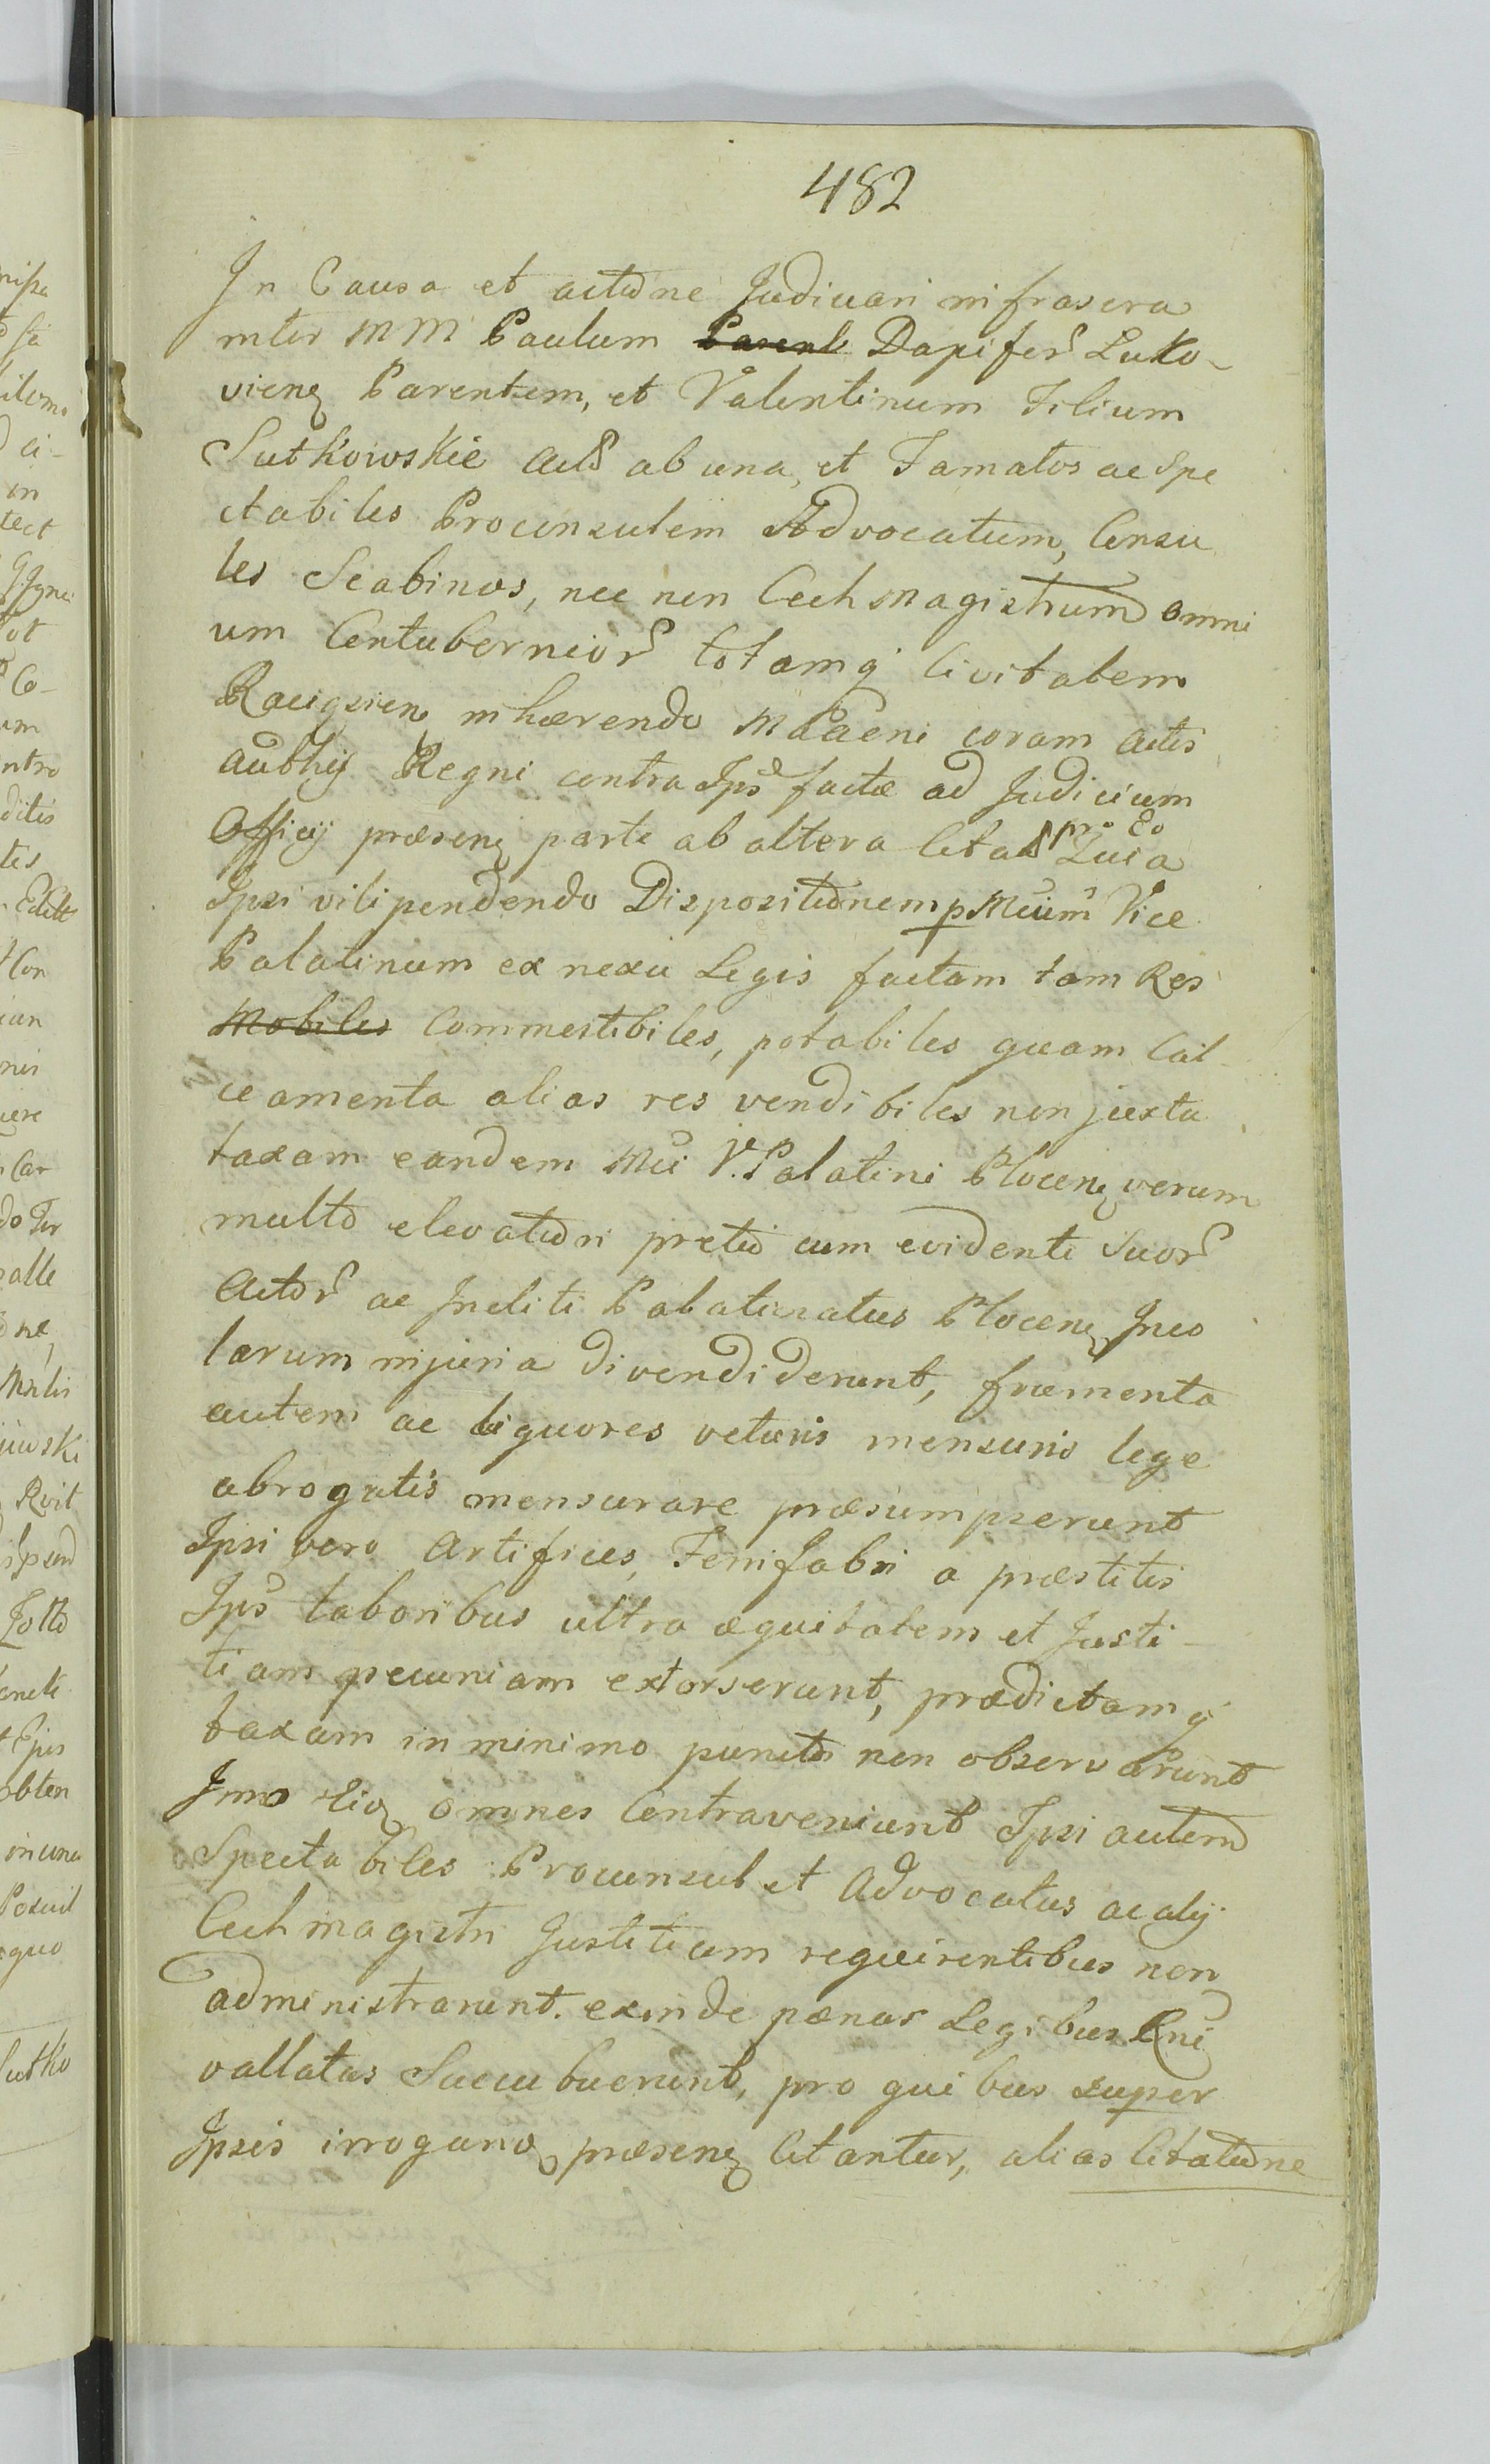 482
In Causa et actione Judicari infrascra
inter M M Paulum Parent Dapifer Luko-
vien Parentem, et Valentinum Filium
Sutkowskie Acts ab una, et Famatos ac Spe
ctabiles Proconsulem Advocatum, Consu
les Scabinos, nec non Cechmagistrum omni
um Contubernior totamq Civitatem
Raciązien inhærendo coram Actis
Authy Regni contra Ips factæ ad Judicium
Officij præsen parte ab altera Citat pro Eo Quia
Ipsi vilipendendo Dispositionem p Mcum Vice
Palatinum ex nexu Legis factam tam Res
Mobiles Commestibiles, potabiles quam Cal-
ceamenta alias res vendibiles non juxta
taxam eandem Mci V. Palatini Plocen verum
multo elevatiori pretio cum evidenti Suor
Actor ac Incliti Palatinatus Plocen Inco
larum injuria divendiderunt, frumenta
autem ac liquores veteris mensuris lege
abrogatis mensurare præsumpserunt
Ipsi vero Artifices, Ferrifabri a præstitis
Ips laboribus ultra æquitatem et Justi-
tiam pecuniam extorserunt, prædictamq
taxam in minimo puncto non observarunt
Imo omnes Contraveniunt Ipsi autem
Spectabiles Proconsul et Advocatus ac alij
Cechmagistri Justitiam requirentibus non
administrarunt. exinde pœnas Legibus Rni
vallatas Succubuerunt, pro quibus super
Ipsis irrogand præsen Citantur, alias Citatione